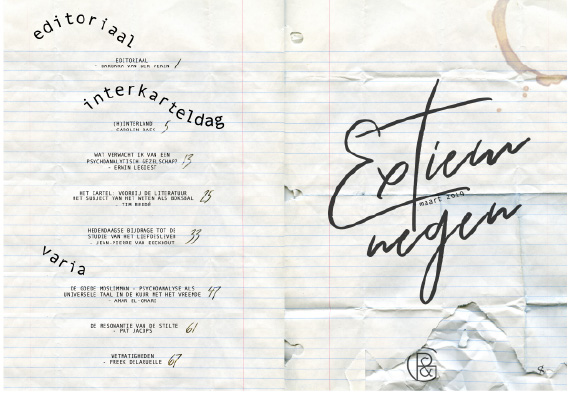 editoriaal
EDITORIAAL
- BARBARA VAN DER
1
interkarteldag
(H)INTERLAND
- CAROLIEN
5
WAT VERWACHT IK VAN EEN
PSYCHOANALYTISCH GEZELSCHAP?
- ERWIN LEGIEST
13
HET CARTEL: VOORBIJ DE LITERATUUR
HET SUBJECT VAN HET WETEN ALS
TIM
25
HEDENDAAGSE BIJDRAGE TOT DE
STUDIE VAN HET
- JEAN-PIERRE VAN EECKHOUT
33
varia
DE GOEDE MOSLIMMAN - PSYCHOANALYSE ALS
UNIVERSELE TAAL IN DE KUUR MET HET VREEMDE
- AMAR EL-OMARI
47
DE RESONANTIE VAN DE STILTE
- PAT JACOPS
61
WETRATIGHEDEN
- FREEK DELARUELLE
67
Extiem
maart 2019
negen